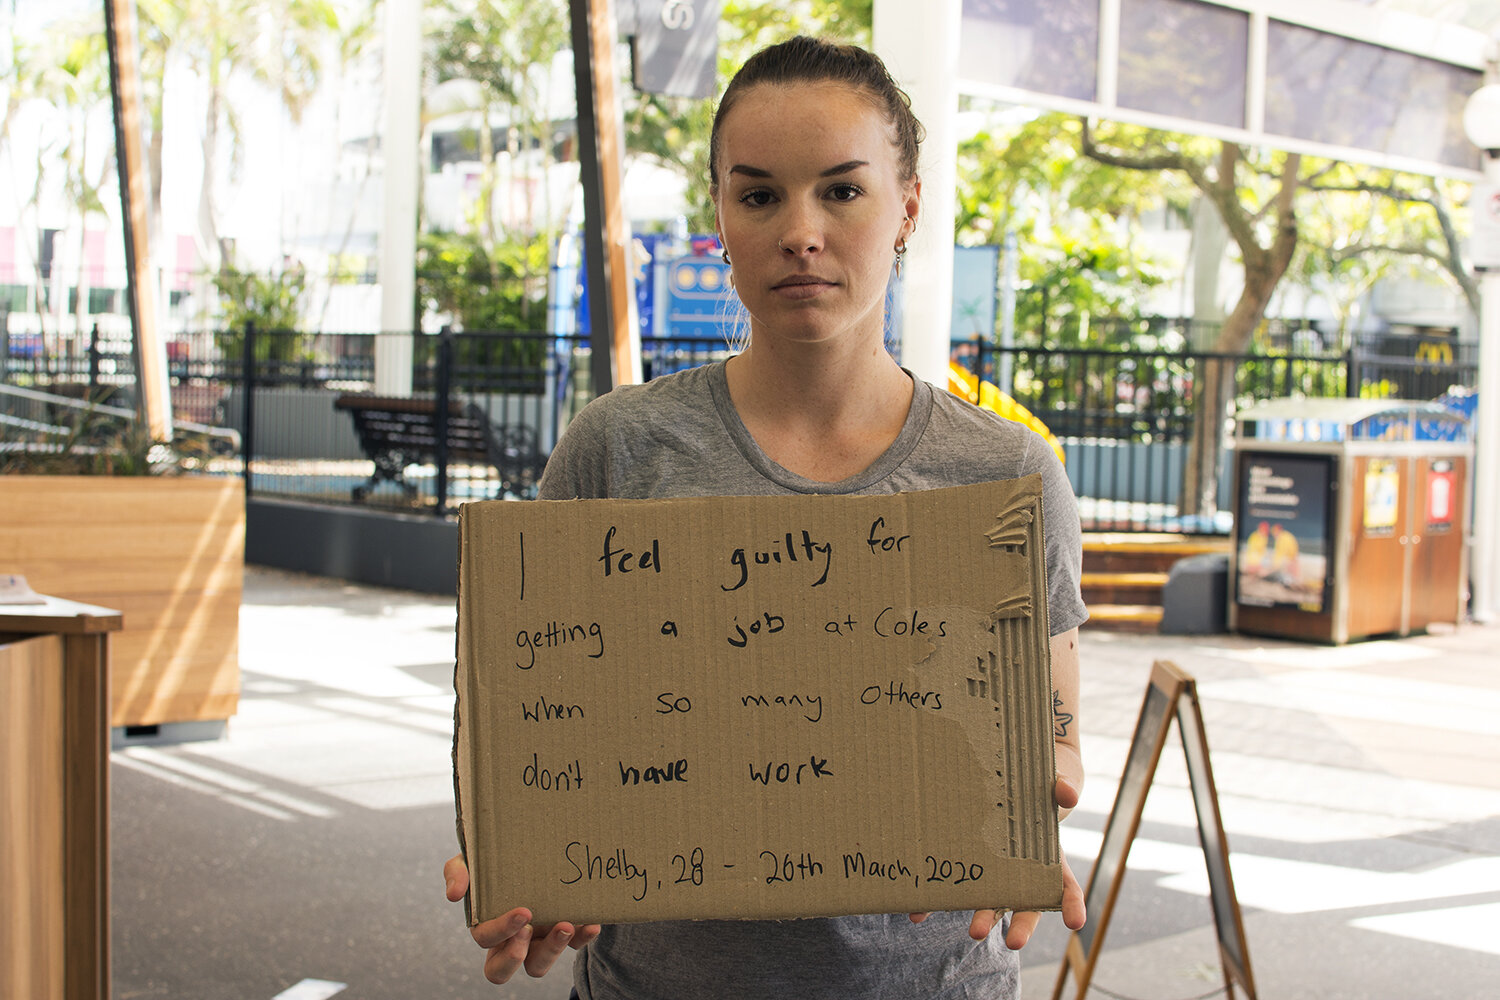 I feel guilty for
getting a job at Coles
when so many others
don't have work
Shelby, 28 - 26th March, 2020